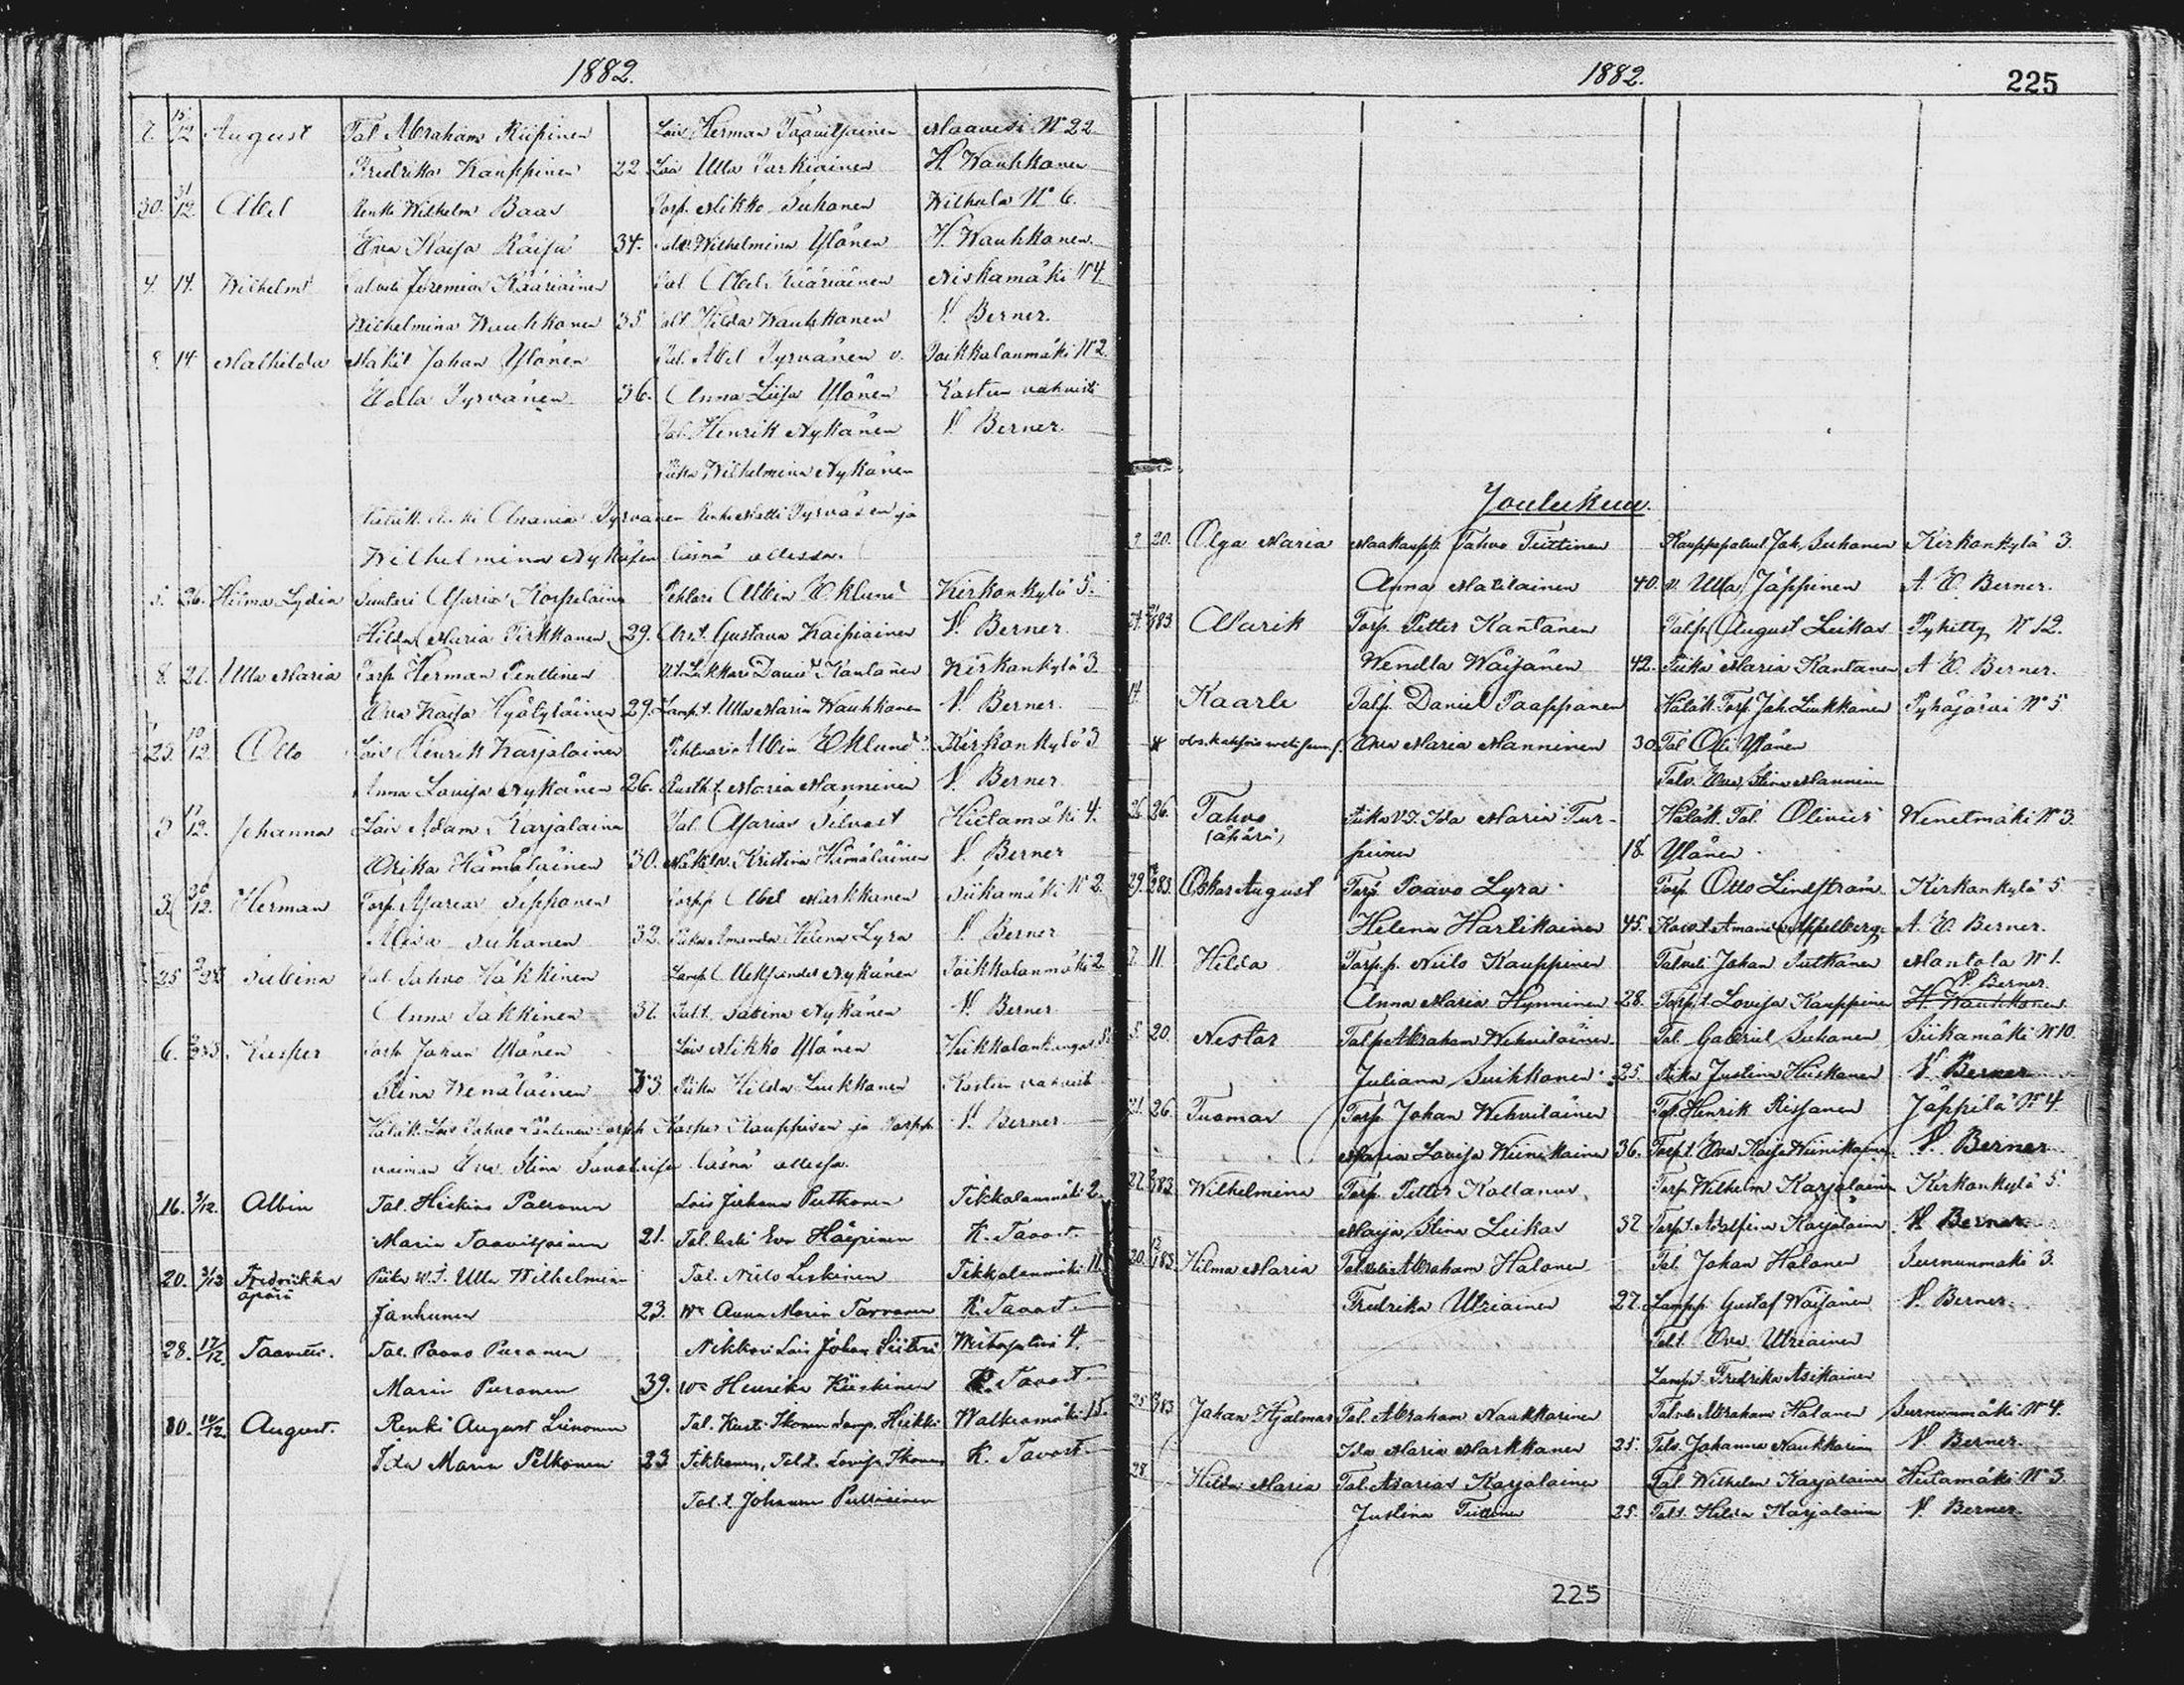 1882.
7. 15/12 August Tal. Abraham Riipinen Lois Herman Taavitsainen Maavesi N° 22
Fredrika Kauppinen 22 Lois Ulla Parkiainen H. Wauhkonen
30. 31/12 Abel Renki Wilhelm Baas Torp. Mikko Suhonen Wilhula N° 6.
Eva Kaisa Räisä 34. Wilhelmina Ylönen H. Wauhkonen.
4. 14. Wilhelm Jeremias Kääriäinen Tal. Abel Kääriäinen Niskamäki N° 4
Wilhelmina Wauhkonen 35 Tal.t. Hilda Wauhkonen V. Berner.
8. 14. Mathilda Mäkit. Johan Ylönen Tal. Abel Tyrvänen v. Paikkalanmäki N° 2.
Ulla Tyrvänen 36. Anna Liisa Ylönen Kasteen vahvisti
Tal. Henrik Nykänen V. Berner.
Piika Wilhelmina Nykänen
Anania Tyrvänen Renki Matti Tyrväsen ja
Wilhelmina Nykäsen läsnä ollessa.
5. 26. Hilma Lydia Suutari Asaria Korpelainen Pehtori Albin Eklund Kirkonkylä 5.
Hilda Maria Pirkkonen 29. Gustava Kaipiainen V. Berner.
8. 27. Ulla Maria Torp. Herman Penttinen David Kautonen Kirkonkylä 3
Eva Kaisa Hyötyläinen 29. Lamp.t. Ulla Maria Wauhkonen V. Berner.
23. 10/12. Otto Lois Henrik Karjalainen Albin Eklund Kirkonkylä 3
Anna Lovisa Nykänen 26. Maria Manninen V. Berner
3 17/12. Johanna Lois Adam Karjalainen Tal. Asarias Silvast Kietamäki 4.
Erika Hämäläinen 30. Kristina Hämäläinen V. Berner
3 30/12. Herman Torp. Asarias Seppänen Torpp. Abel Markkanen Siikamäki N° 2.
Suhonen 32. Piika Amanda Helena Lyra V. Berner
25 Sabina Tal. Tahvo Häkkinen Lamp. Aleksander Nykänen Paikkalanmäki 2
Anna Häkkinen 37. Tal.t. Sabina Nykänen V. Berner
6. Kasper Torp. Johan Ylönen Lois Mikko Ylönen
Stina Wenäläinen 33. Piika Hilda Liukkonen Kasteen vahvisti
Hätäk. Lois Tahvo Kasper Kauppisen ja Torpp. V. Berner
vaimon Eva Stina läsnä ollessa.
16. 3/12. Albin Tal. Heikins Paltonen Lois Juhana Puttonen Tikkalanmäki 2.
Maria Taavitsainen 21. Tal. leski Eva Häyrinen K. Tavast.
20. 3/12 Fredriikka Piika W.T. Ulla Wilhelmin- Tal. Niilo Leskinen Tikkalanmäki 11
äpärä
Janhunen 23. W° Anna Maria Tarvonen K. Tavast.
28. 17/12. Taavetti. Tal. Paavo Puranen Nikkari Lois Johan Siiteri 4.
Maria Puranen 39. W° Henrika Kiiskinen K. Tavast
30. 10/12. August. Renki August Leinonen Tal. Kusti Ikonen Lamp. Heikki Walkeamäki 15.
Ida Maria Pelkonen 23 Tikkanen, Tal.t. Lovisa Ikonen K. Tavast.
Tal.t. Johanna
1882.
225
Joulukuu.
20. Olga Maria Maakaupp. Tahvo Tiittinen Kauppapalvel. Joh. Suhonen Kirkonkylä 3.
Anna Matilainen 40. v. Ulla Jäppinen A. E. Berner.
Alarik Torp. Petter Kantanen Talp. August Leikas Pyhitty N° 12.
Wendla Wäisänen 42. Piika Maria Kantanen A. E. Berner.
14. Kaarle Talp. Daniel Paappanen Hätäk. Torp. Joh. Liukkonen Pyhäjärvi N° 5
Eva Maria Manninen 30. Tal. Olli Ylönen
Talv. Eva Stina Manninen
26. 26. Tahvo Piika V.T. Ida Maria Tur- Hätäk. Tal. Olivier Wenetmäki N° 3.
(äpärä)
piinen 18. Ylönen.
29. Oskar August Torp. Paavo Lyra Torp. Otto Lindström Kirkonkylä 5
Helena Hartikainen 45. Amanda Appelberg. A. E. Berner.
7. 11. Hilda Torp.p. Niilo Kauppinen Talveli Johan Putkonen Montola N° 1.
V. Berner.
Anna Maria Hynninen 28. Torp.t. Lovisa Kauppinen H. Wauhkonen
5. 20. Nestor Talp. Abraham Wehviläinen Tal. Gabriel Suhonen Siikamäki N° 10.
Juliana Suikkonen 25. Piika Justina Hiiskanen V. Berner
21. 26. Tuomas Torp. Johan Wehviläinen Tal. Henrik Rissanen Jäppilä N° 4
Maria Lovisa Wiinikainen 36. Torp.t. Eva Kaisa Wiinikainen V. Berner
22. Wilhelmina Torp. Petter Kollanus Torp. Wilhelm Karjalainen Kirkonkylä 5.
Maija Stina Leikas 37 Torp.t. Adolfina Karjalainen V. Berner
20. Hilma Maria Talveli Abraham Halonen Tal. Johan Halonen Surnunmäki 3.
Fredrika Utriainen 27. Lampp. Gustaf Wäisänen V. Berner.
Tal.t. Eva Utriainen
Lamp.t. Fredrika Asikainen
25 Johan Hjalmar Tal. Abraham Naukkarinen Talveli Abraham Halonen Surnunmäki N° 4.
Ida Maria Markkanen 25. Talv. Johanna Naukkarinen V. Berner.
28. Hilda Maria Tal. Asarias Karjalainen Tal. Wilhelm Karjalainen Hietamäki N° 3
Justina Tiitinen 25. Tal.t. Hilda Karjalainen V. Berner.
225